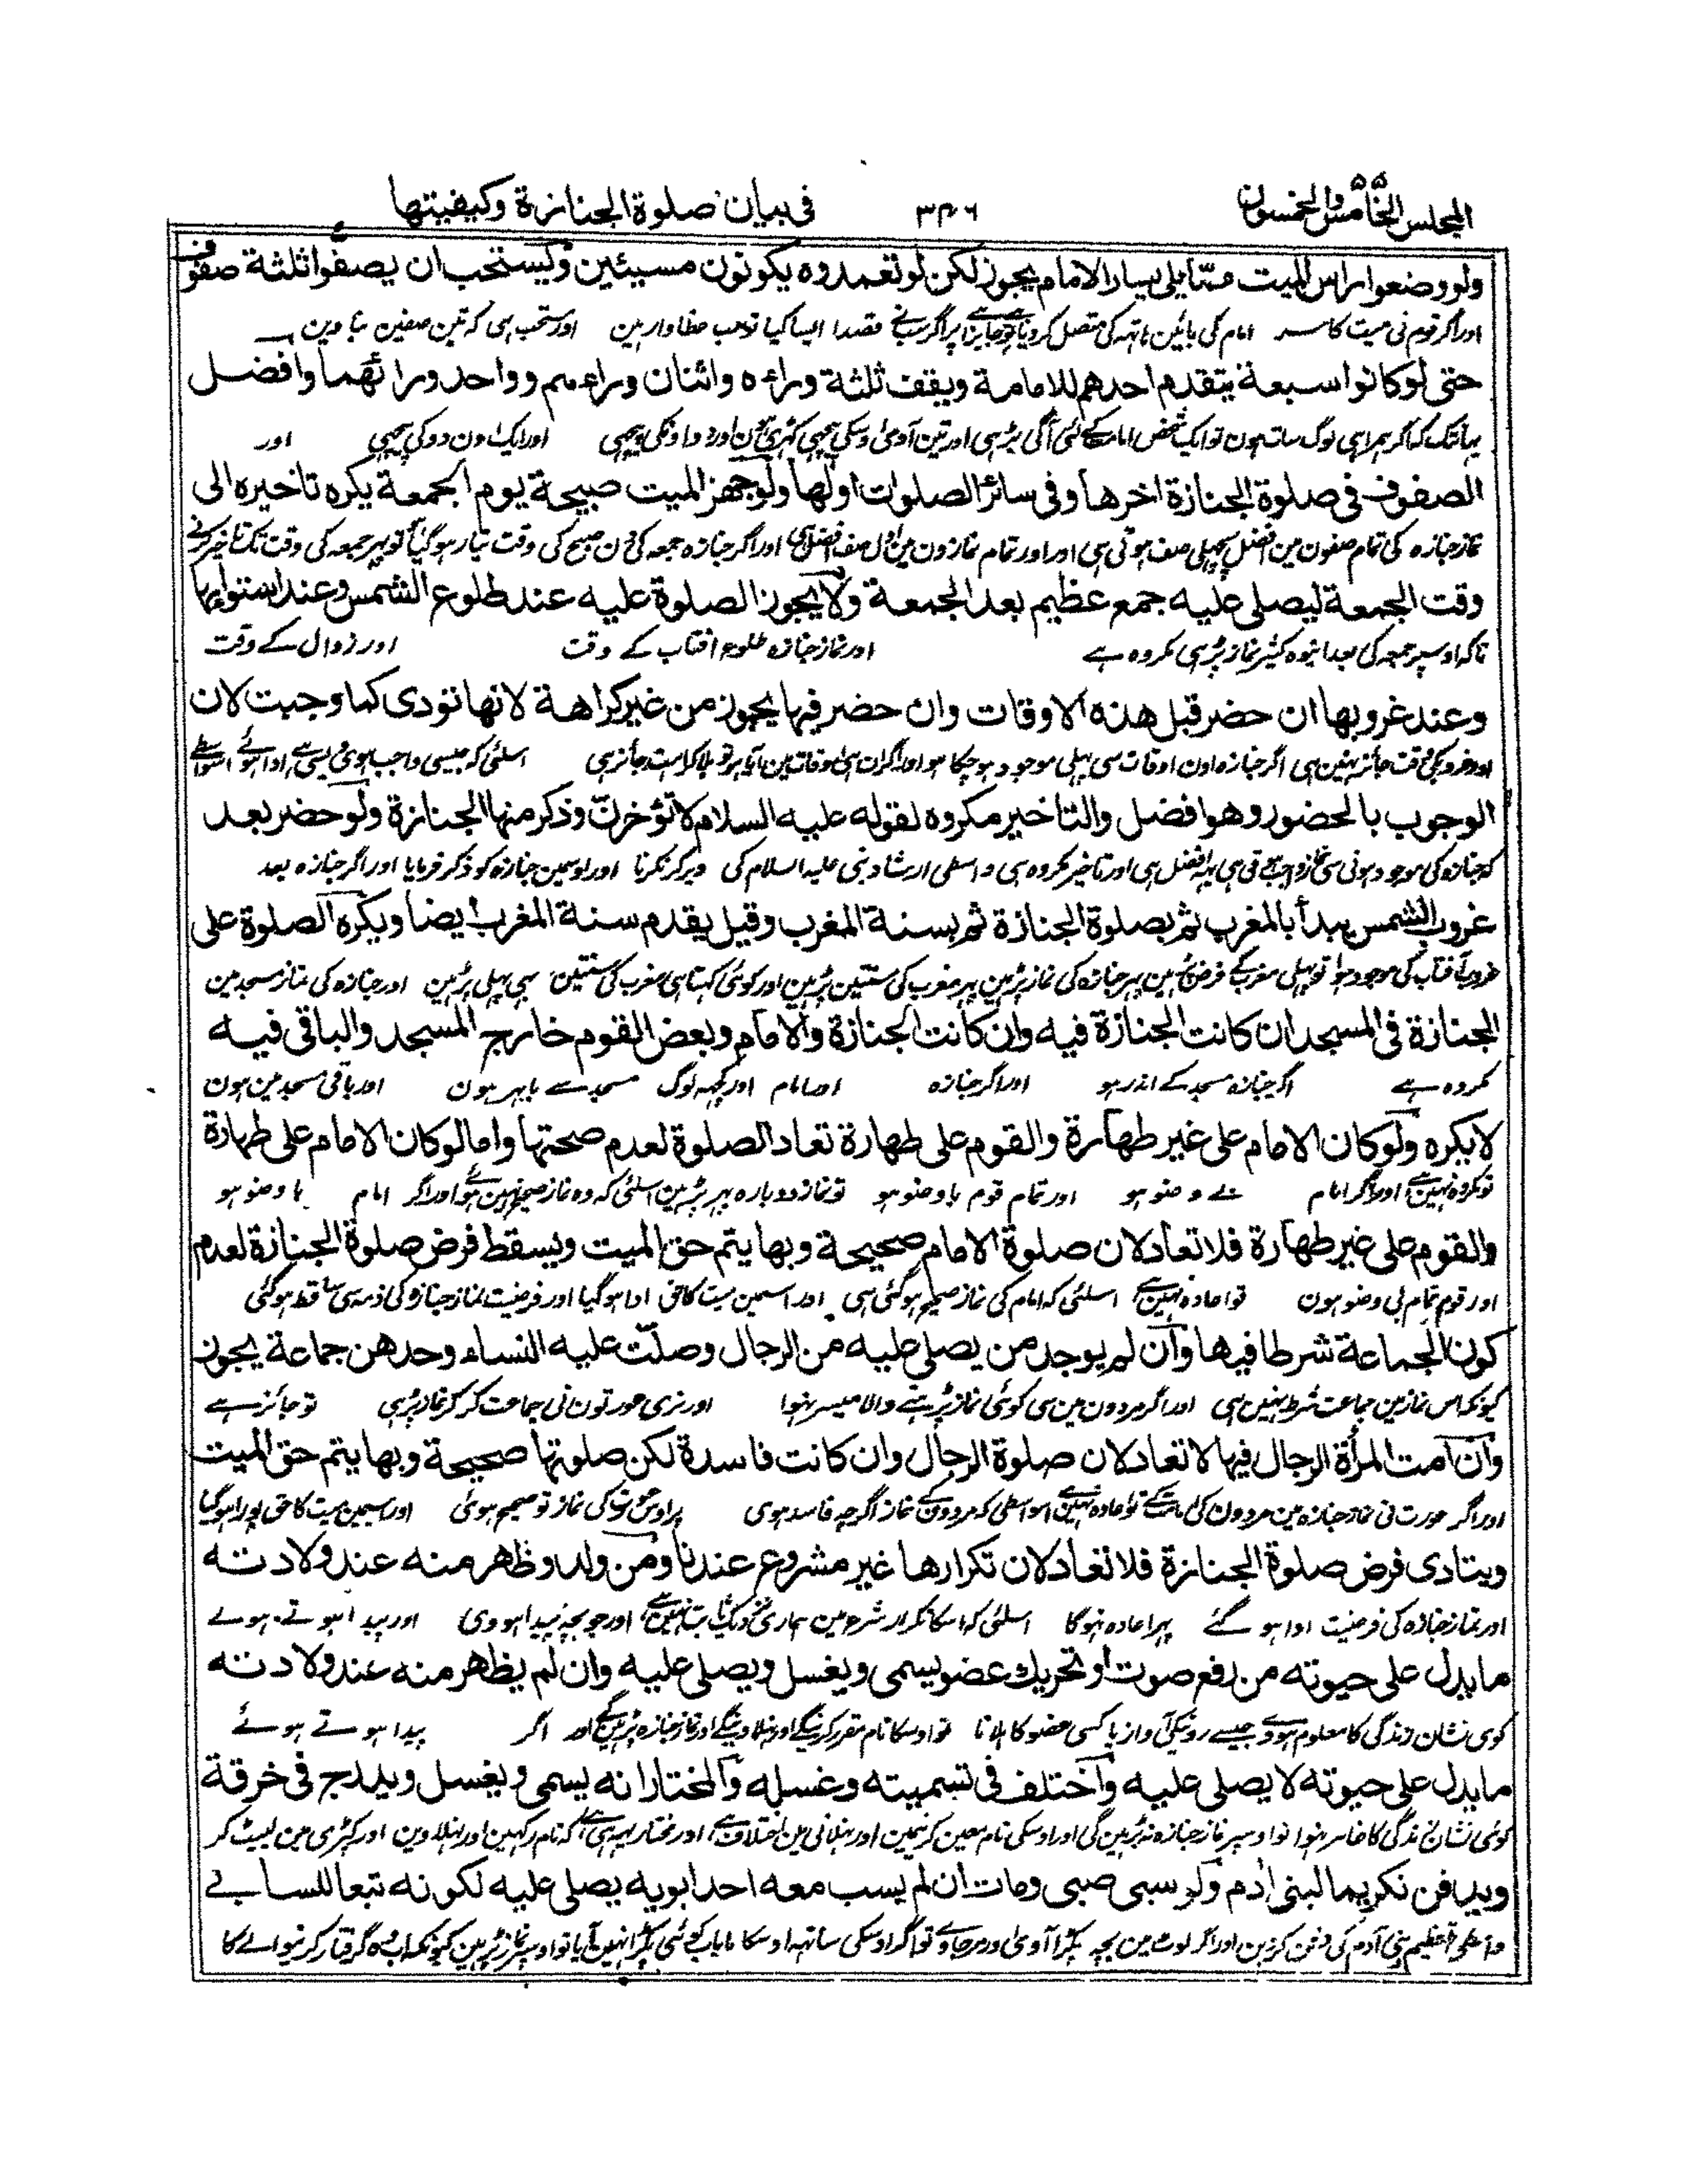 المجلس الخامس والخمسون ۳۴۶ فى بيان صلوة الجنازة وكيفيتها
ولو وضعوا راس الميت مما يلى يسار الامام يجوز لكن لو تعمدوه يكونون مسيئين ويستحب ان يصفوا ثلثة صفوف
اور اگر قوم نی میت کا سر امام کی بائین ہاتہہ کی متصل کردیا تو جائز ہے پر اگر سب نے قصدا ایسا کیا تو سب خطاوار ہین اور مستحب ہی کہ تین صفین بنا وین
حتى لو كانوا سبعة يتقدم احدهم للامامة ويقف ثلثة وراءه واثنان وراءهم وواحد ورائهما وافضل
یہانتک کہ اگر ہمراہی لوگ سات ہون تو ایک شخص امامت کے لئی آگی بڑہی اور تین آدمی اوسکی پیچہی کہڑی ہون اور دو اونکی پیچہی اور ایک اون دو کی پیچہی اور
الصفوف فى صلوة الجنازة اخرها وفى سائر الصلوات اولها ولو جهز الميت صبيحة يوم الجمعة يكره تاخيره الى
نماز جنازہ کی تمام صفون مین افضل پچہلی صف ہوتی ہی اور اور تمام نمازون مین اول صف افضل ہی اور اگر جنازہ جمعہ کی دن صبح کی وقت تیار ہوگیا تو پہر جمعہ کی وقت تک تاخیر کرنے
وقت الجمعة ليصلى عليه جمع عظيم بعد الجمعة ولا يجوز الصلوة عليه عند طلوع الشمس وعند استوائها
تاکہ اوسپر جمعہ کی بعد انبوہ کثیر نماز پڑہی مکروہ ہے اور نماز جنازہ طلوع افتاب کے وقت اور زوال کے وقت
وعند غروبها ان حضر قبل هذه الاوقات وان حضر فيها يجوز من غير كراهة لانها تودى كما وجبت لان
اور غروب کی وقت جائز نہین ہی اگر جنازہ اون اوقات سی پہلی موجود ہوچکا ہو اور اگر ان ہی اوقات مین آیا ہو تو بلا کراہت جائز ہی اسلئی کہ جیسی واجب ہوئی ویسی ہے ادا ہوئے اسواسطے
الوجوب بالحضور وهو افضل والتاخير مكروه لقوله عليه السلام لا تؤخرن وذكر منها الجنازة ولو حضر بعد
کہ جنازہ کی موجود ہونی سی نماز واجب ہوتی ہی یہہ افضل ہی اور تاخیر مکروہ ہی واسطی ارشاد نبی علیہ السلام کی دیر کر نکرنا اور اوسمین جنازہ کو ذکر فرمایا اور اگر جنازہ بعد
غروب الشمس يبدأ بالمغرب ثم بصلوة الجنازة ثم بسنة المغرب وقيل يقدم سنة المغرب ايضا ويكره الصلوة على
غروب آفتاب کی موجود ہوا تو پہلی مغرب کے فرض پڑہین پہر جنازہ کی نماز پڑہین پہر مغرب کی سنتین پڑہین اور کوئی کہتا ہی مغرب کی سنتین بہی پہلی پڑہین اور جنازہ کی نماز مسجد مین
الجنازة فى المسجد ان كانت الجنازة فيه وان كانت الجنازة والامام وبعض القوم خارج المسجد والباقى فيه
مکروہ ہے اگر جنازہ مسجد کے اندر ہو اور اگر جنازہ اور امام اور کچہہ لوگ مسجد سے باہر ہون اور باقی مسجد مین ہون
لا يكره ولو كان الامام على غير طهارة والقوم على طهارة تعاد الصلوة لعدم صحتها واما لو كان الامام على طهارة
تو مکروہ نہین ہے اور اگر امام بے وضو ہو اور تمام قوم باوضو ہو تو نماز دوبارہ پہر پڑہین اسلئی کہ وہ نماز صحیح نہین ہوئے اور اگر امام با وضو ہو
والقوم على غير طهارة فلا تعاد لان صلوة الامام صحيحة وبها يتم حق الميت ويسقط فرض صلوة الجنازة لعدم
اور قوم تمام بی وضو ہون تو اعادہ نہین ہے اسلئی کہ امام کی نماز صحیح ہو گئی ہی اور اسمین میت کا حق ادا ہوگیا اور فرضیت نماز جنازہ کی ذمہ سی ساقط ہوگئی
كون الجماعة شرطا فيها وان لم يوجد من يصلى عليه من الرجال وصلت عليه النساء وحدهن جماعة يجوز
کیونکہ اس نماز مین جماعت شرط نہین ہی اور اگر مردون مین سی کوئی نماز پڑہنے والا میسر نہوا اور نری عورتون نی جماعت کر کر نماز پڑہی تو جائز ہے
وان امت المرأة الرجال فيها لا تعاد لان صلوة الرجال وان كانت فاسدة لكن صلوتها صحيحة وبها يتم حق الميت
اور اگر عورت نی نماز جنازہ مین مردون کی امامت کی تو اعادہ نہین ہے اسواسطی کہ مردون کے نماز اگرچہ فاسد ہوی پر اوس عورت کی نماز تو صحیح ہوئی اور اسیمین میت کا حق پورا ہوگیا
ويتادى فرض صلوة الجنازة فلا تعاد لان تكرارها غير مشروع عندنا ومن ولد وظهر منه عند ولادته
اور نماز جنازہ کی فرضیت ادا ہو گئے پہر اعادہ نہوگا اسلئی کہ اسکا تکرار شرع مین ہماری نزدیک ثابت نہین ہے اور جو بچہ پیدا ہووی اور پیدا ہوتے ہوے
ما يدل على حيوته من رفع صوت او تحريك عضو يسمى ويغسل ويصلى عليه وان لم يظهر منه عند ولادته
کوی نشان زندگی کا معلوم ہووے جیسے رونیکی آواز یا کسی عضو کا ہلانا تو اوسکا نام مقرر کرینگے اور نہلاوینگے اور نماز جنازہ پڑہین گے اور اگر پیدا ہوتے ہوئے
ما يدل على حيوته لا يصلى عليه واختلف فى تسميته وغسله والمختار انه يسمى ويغسل ويدرج فى خرقة
کوئی نشان زندگی کا ظاہر نہوا تو اوسپر نماز جنازہ نہ پڑہین گی اور اوسکی نام معین کرنیمین اور نہلانی مین اختلاف ہے اور مختار یہہ ہی ہے کہ نام رکہین اور نہلاوین اور کپڑی مین لپیٹ کر
ويدفن تكريما لبنى ادم ولو سبى صبى ومات ان لم يسب معه احد ابويه يصلى عليه لكونه تبعا للسابے
واسطی تعظیم بنی آدم کی دفن کرین اور اگر لوٹ مین بچہ پکڑا آوی اور مرجاوے تو اگر اوسکی ساتہہ اوسکا ماباپ کوئی پکڑا نہین آیا تو اوسپر نماز پڑہین کیونکہ اب وہ گرفتار کرنیوالے کا